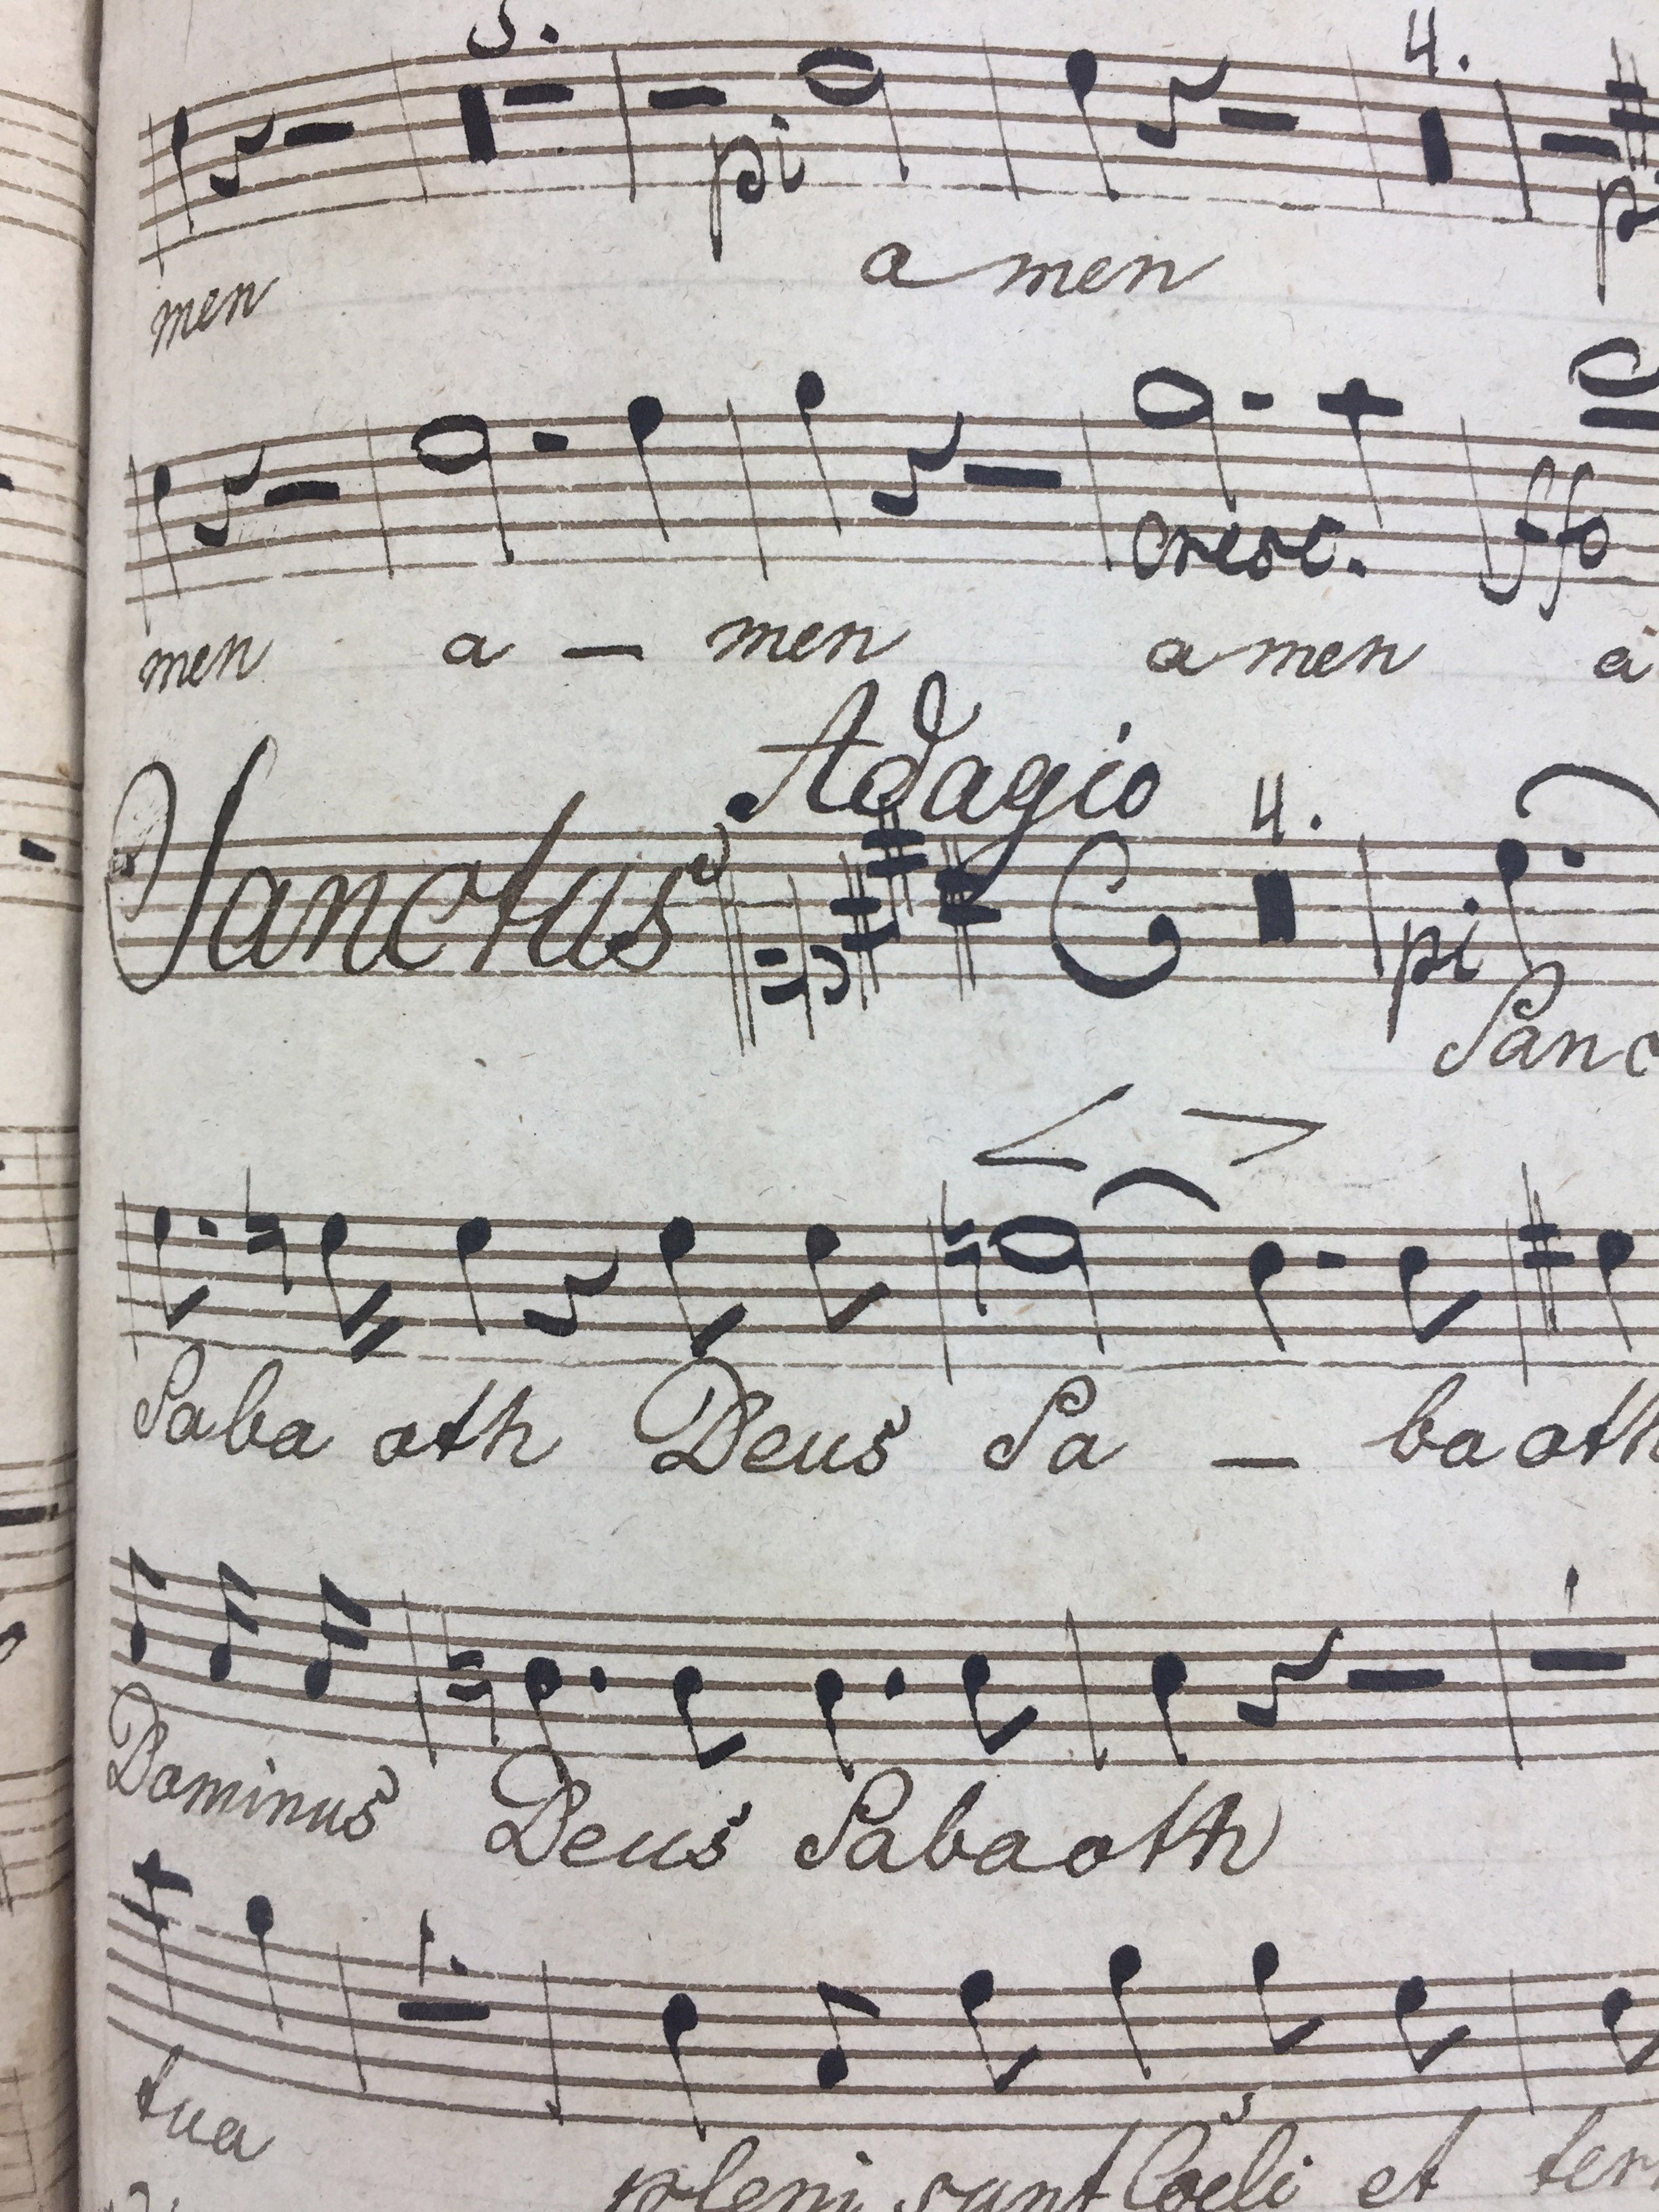 5.
pi
4.
men a men
cresc. ffo
men a — men a men a
Adagio
Sanctus 4. pi
Sanc
Saba oth Deus Sa — ba oth
Dominus Deus Sabaoth
1.
tua pleni sunt Coeli et